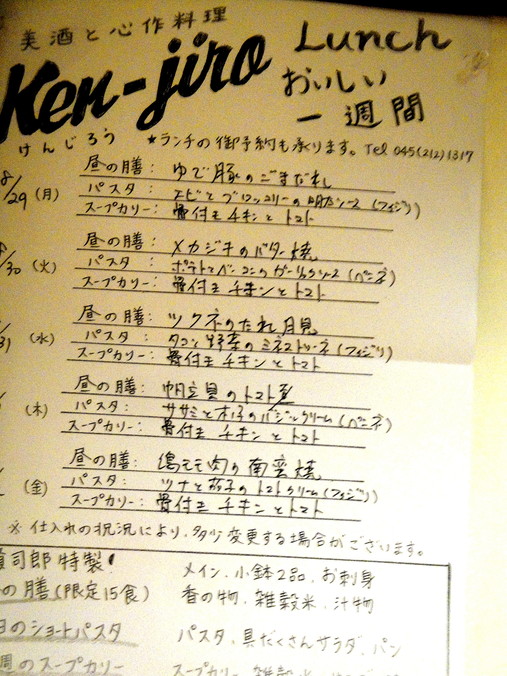 美酒と心作料理
Ken-jiro Lunch
けんじろう
おいしい
一週間
★ランチの御予約も承ります。Tel 045(212)1317
8/29 (月)
昼の膳: ゆで豚のごまだれ
パスタ: エビとブロッコリーの明太ソース (フィジリ)
スープカリー: 骨付モモチキンとトマト
30 (火)
昼の膳: メカジキのバター焼
パスタ: ポテトとベーコンのガーリックソース (ペンネ)
スープカリー: 骨付モモチキンとトマト
31 (水)
昼の膳: ツクネのたれ月見
パスタ: タコと野菜のミネストローネ (フィジリ)
スープカリー: 骨付モモチキンとトマト
(木)
昼の膳: 帆立貝のトマト煮
パスタ: ササミとオクラのバジルクリーム (ペンネ)
スープカリー: 骨付モモチキンとトマト
(金)
昼の膳: 鶏モモ肉の南蛮焼
パスタ: ツナと茄子のトマトクリーム (フィジリ)
スープカリー: 骨付モモチキンとトマト
※仕入れの状況により、多少変更する場合がございます。
司郎特製!
の膳(限定15食) メイン、小鉢2品、お刺身
香の物、雑穀米、汁物
日のショートパスタ パスタ、具だくさんサラダ、パン
週のスープカリー スープカリー、雑穀米